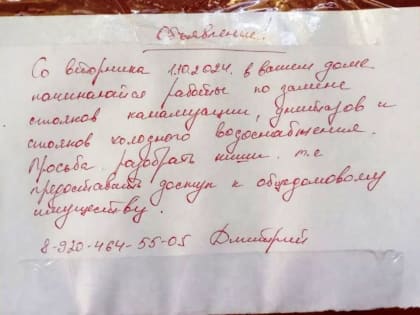 Объявление.
Со вторника 1.10.2024. в вашем доме
начинаются работы по замене
стояков канализации, и
стояков холодного водоснабжения.
Просьба разобрать ниши. т.е
предоставить доступ к общедомовому
имуществу.
8-920-464-55-05 Дмитрий